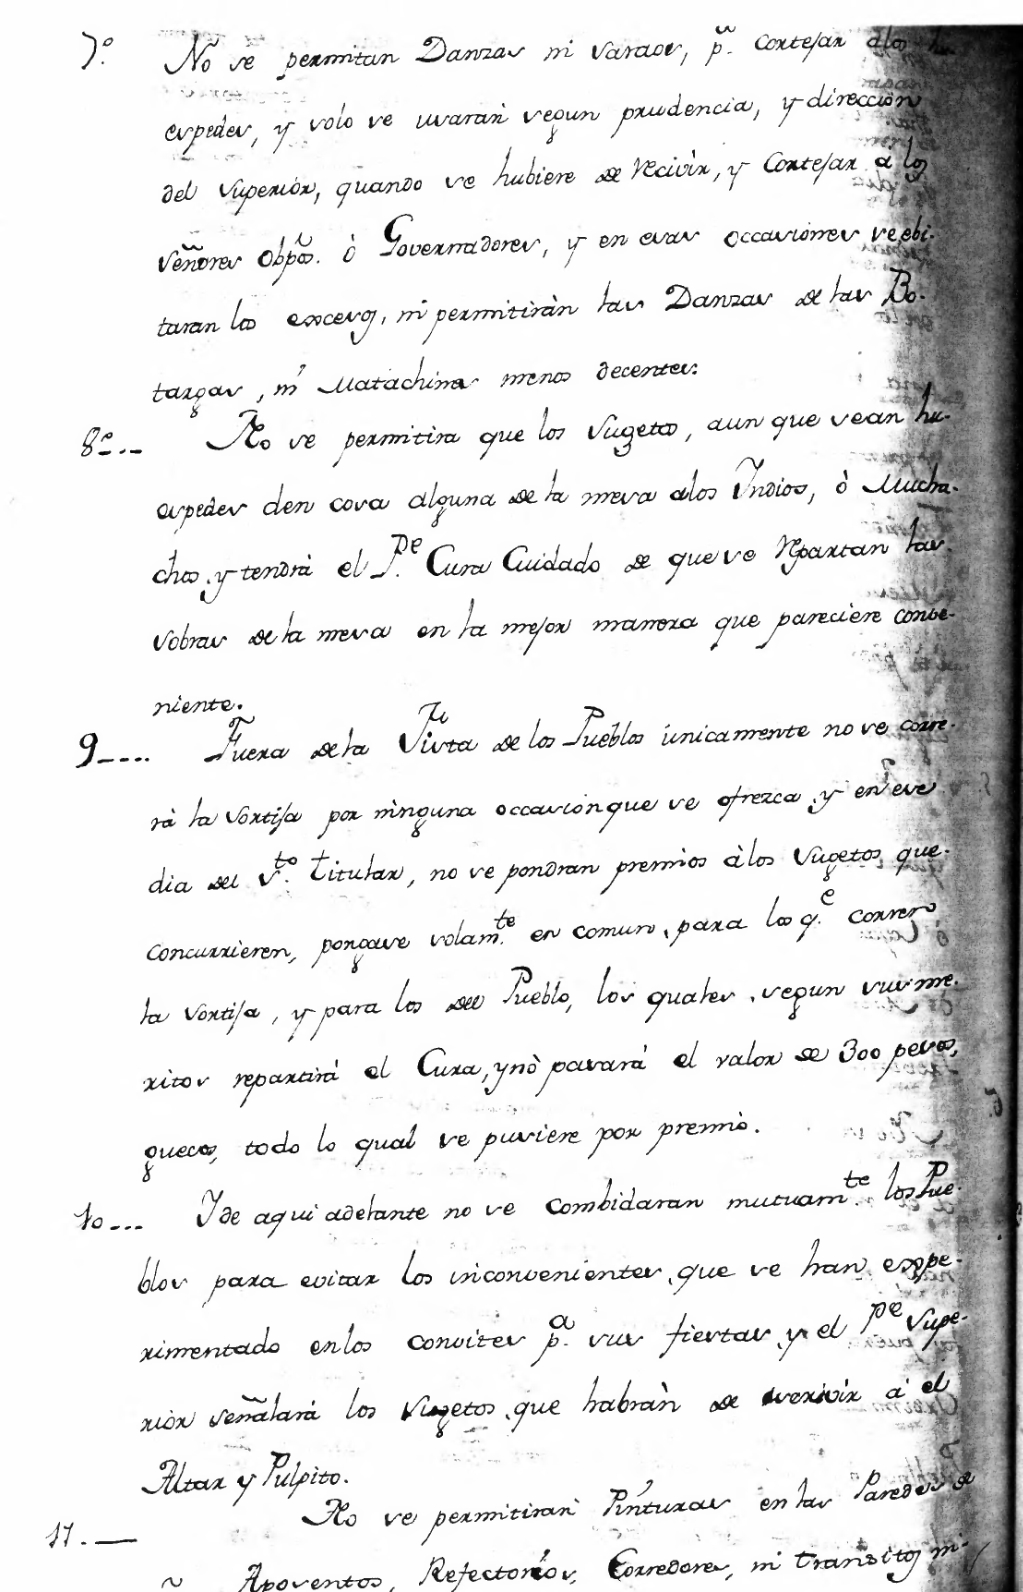 7.º No se permitan Danzas ni saraos, p.ª Cortejar alos hu
espedes, y solo se usarán segun prudencia, y dirección
del Superiòr, quando se hubiere de recivìr, y Cortejar a los
Señores Obpõs. ò Governadores, y en esas occasiones se ebi-
taran los excesos, ni permitiràn las Danzas de las Bo-
targas, ni Matachines menos decentes.
8º... No se permitira que los Sugetos, aun que sean hu-
espedes den cosa alguna de la mesa alos Indios, ò Mucha-
chos, y tendrà el P.e Cura Cuidado de que se repartan las
sobras de la mesa en la mejor manera que pareciere conve-
niente.
9.... Fuera de la Visita de los Pueblos ùnicamente no se corre-
rà la sortija por ninguna occasion que se ofrezca, y en ese
dia del S.to titular, no se pondran premios àlos Sugetos que
concurrieren, porque solam.te en comun, para los q.e corren
la sortija, y para los del Pueblo, los quales, segun sus me-
ritos repartirá el Cura, y nò pasará el valor de 300 pesos
guecos, todo lo qual se pusiere por premiò.
10... I de aqui adelante no se combidaran mutuam.te los Pue-
blos para evitar los inconvenientes, que se han expe-
rimentado en los convites p.a sus fiestas, y el P.e Supe-
riòr señalará los Sugetos, que habràn de servir á el
Altar y Pulpito.
11.— No se permitiran Pinturas en las Paredes de
Aposentos, Refectorios, Corredores, ni transitos ni-